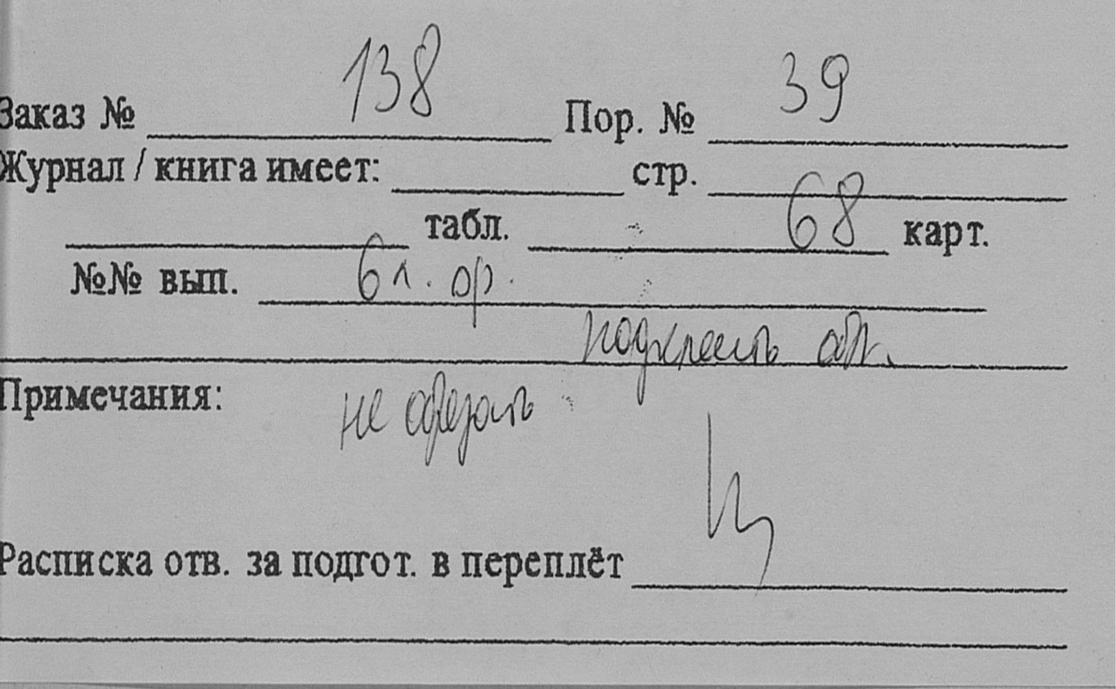 Заказ № 138 Пор. № 39
Журнал / книга имеет: стр.
табл. 68 карт.
№№ вып. 6 л. ор.
подклеить
Примечания: не обрезать
Расписка отв. за подгот. в переплёт